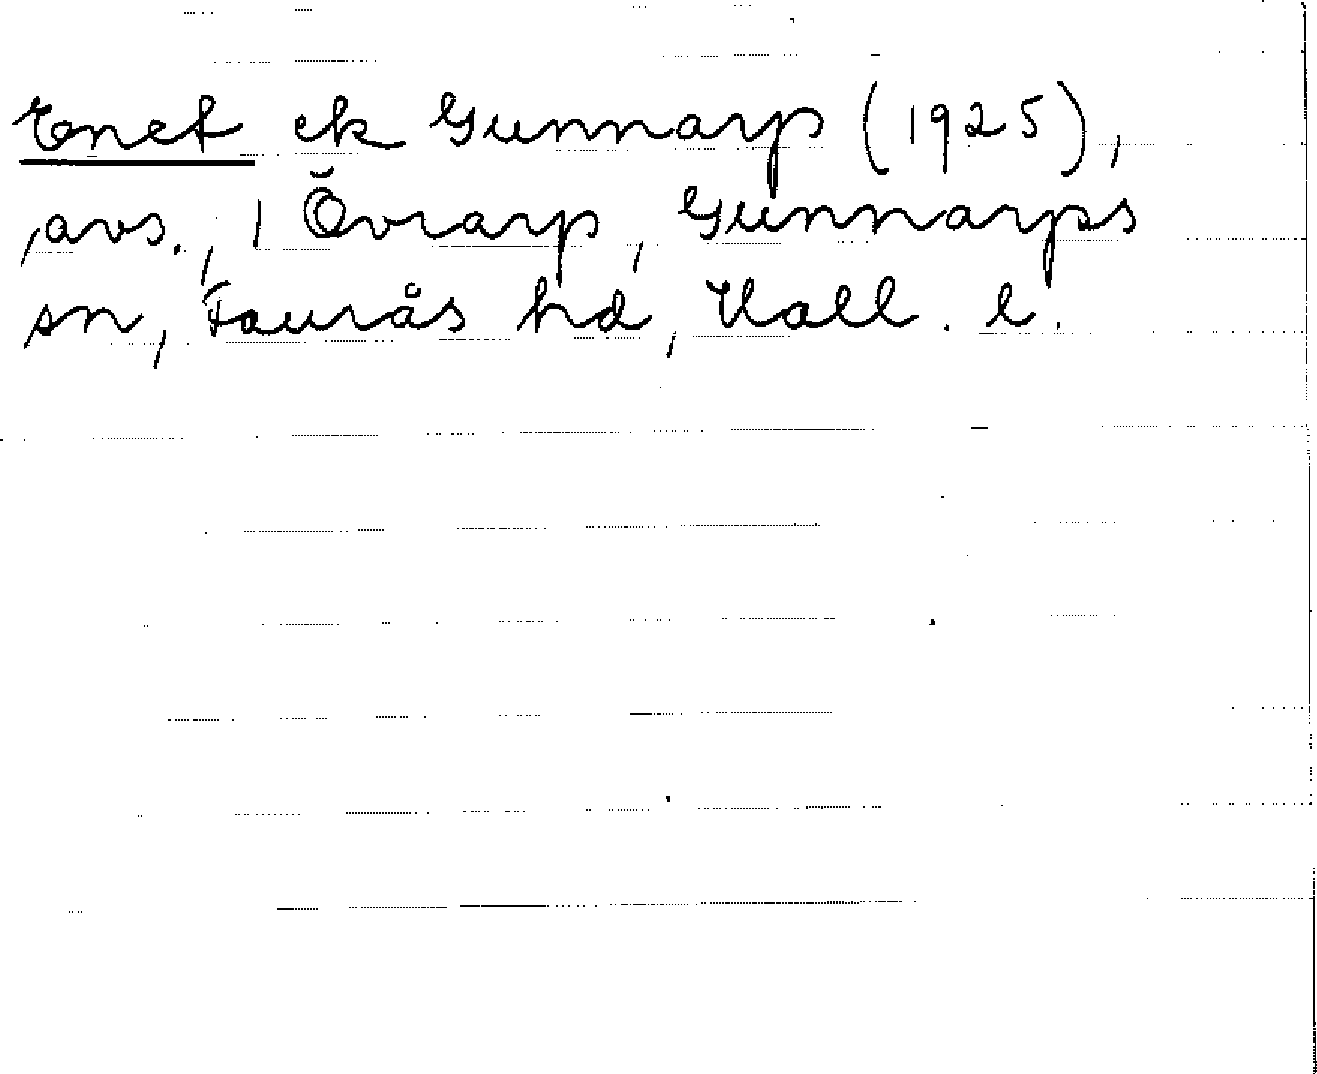 Enet ek Gunnarp (1925),
avs., i Övrarp, Gunnarps
sn, Faurås hd, Hall. l.